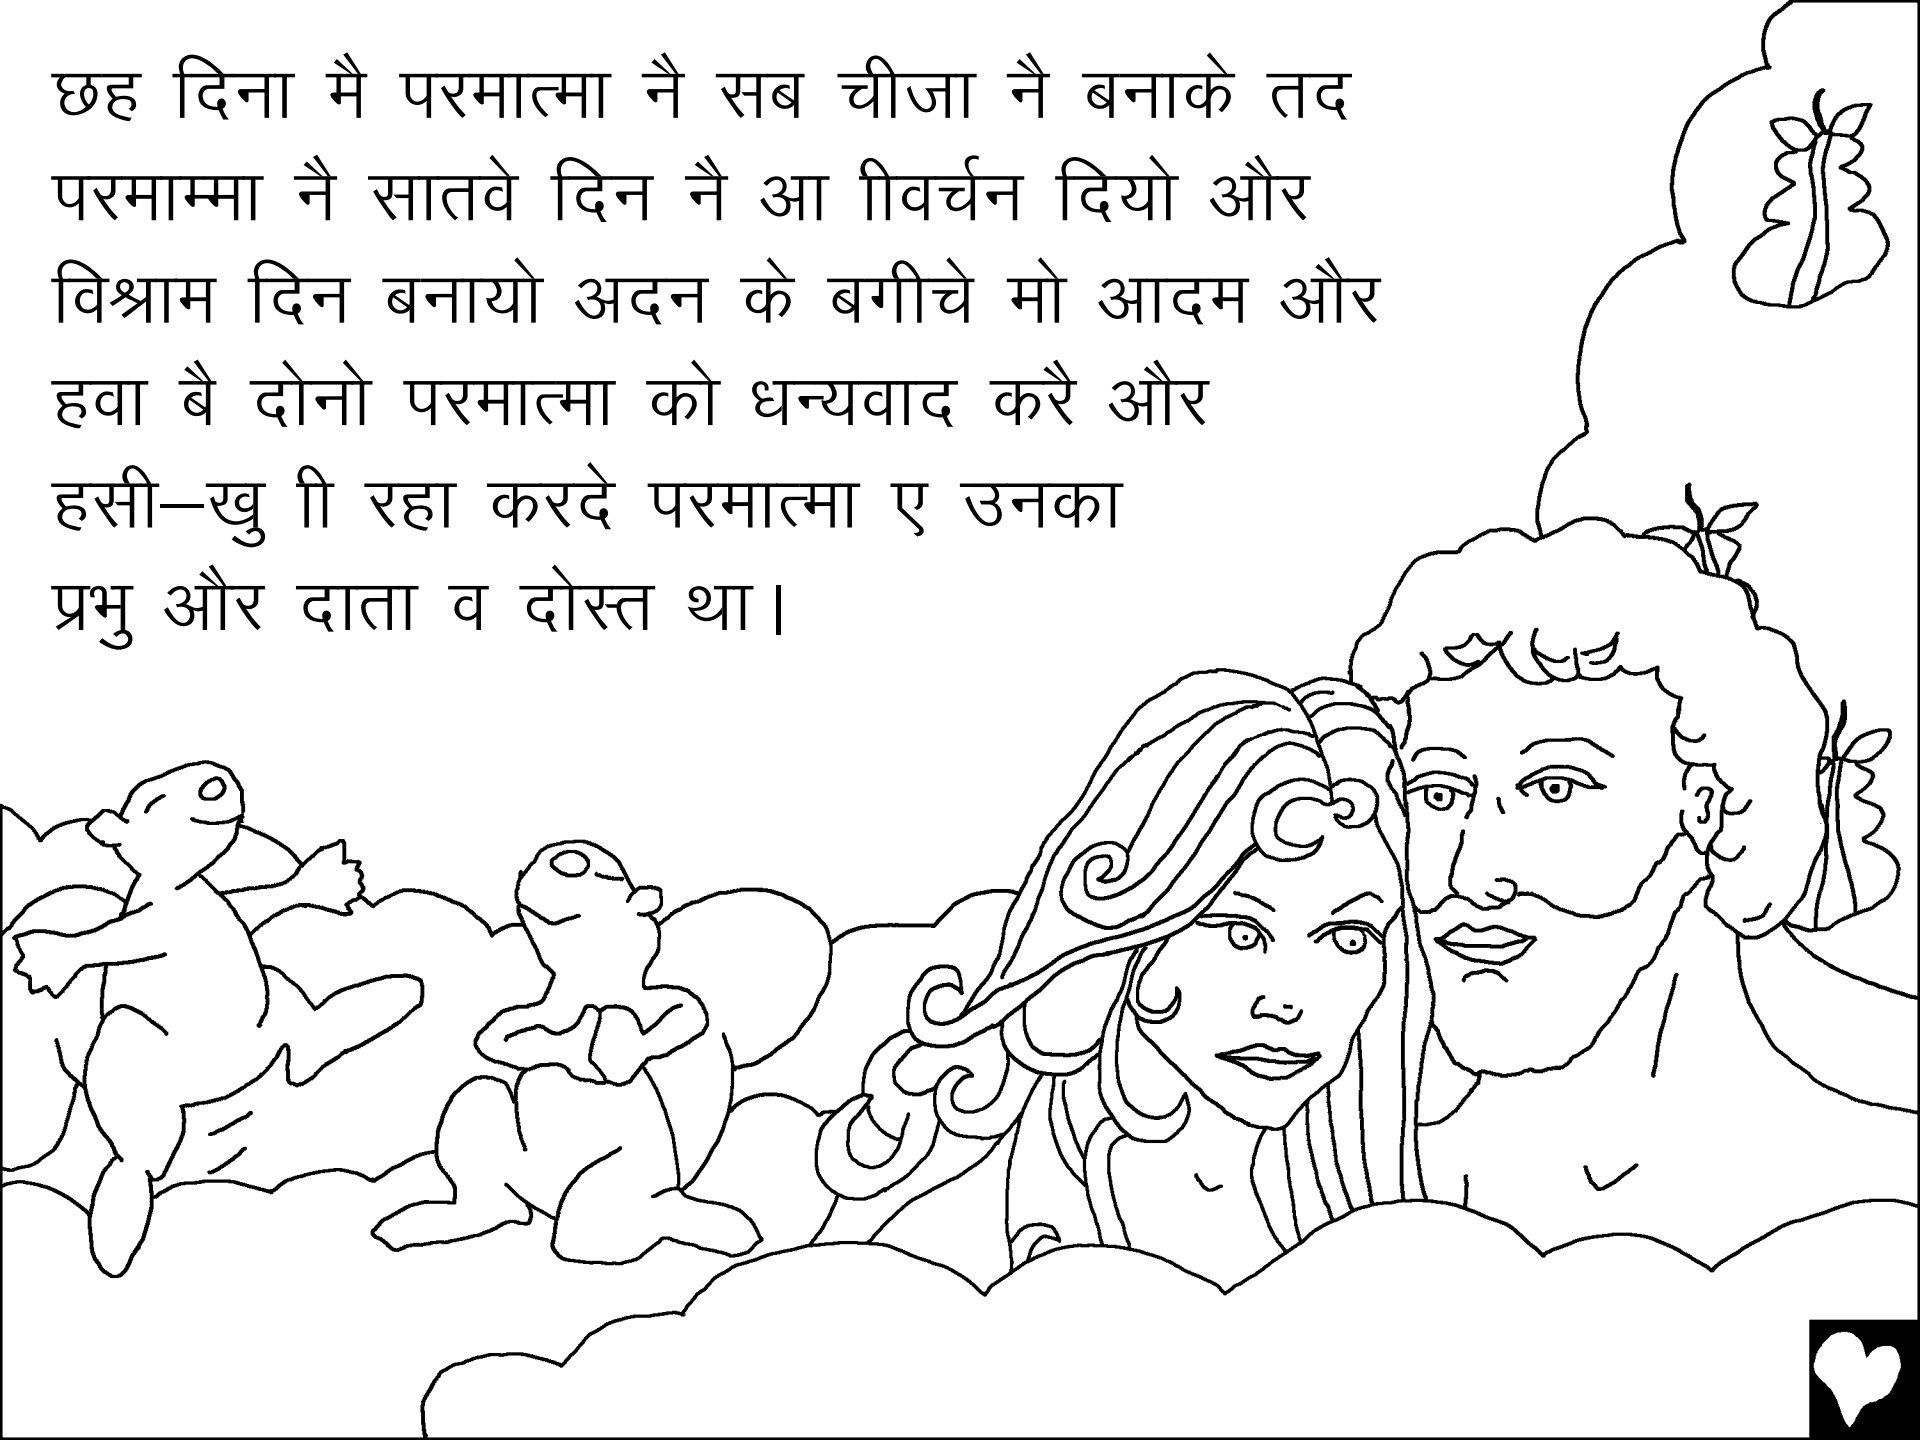 छह दिना मै परमात्मा नै सब चीजा नै बनाके तद
परमाम्मा नै सातवे दिन नै आ ाीवर्चन दियो और
विश्राम दिन बनायो अदन के बगीचे मो आदम और
हवा बै दोनो परमात्मा को धन्यवाद करै और
हसी–खु ाी रहा करदे परमात्मा ए उनका
प्रभु और दाता व दोस्त था।